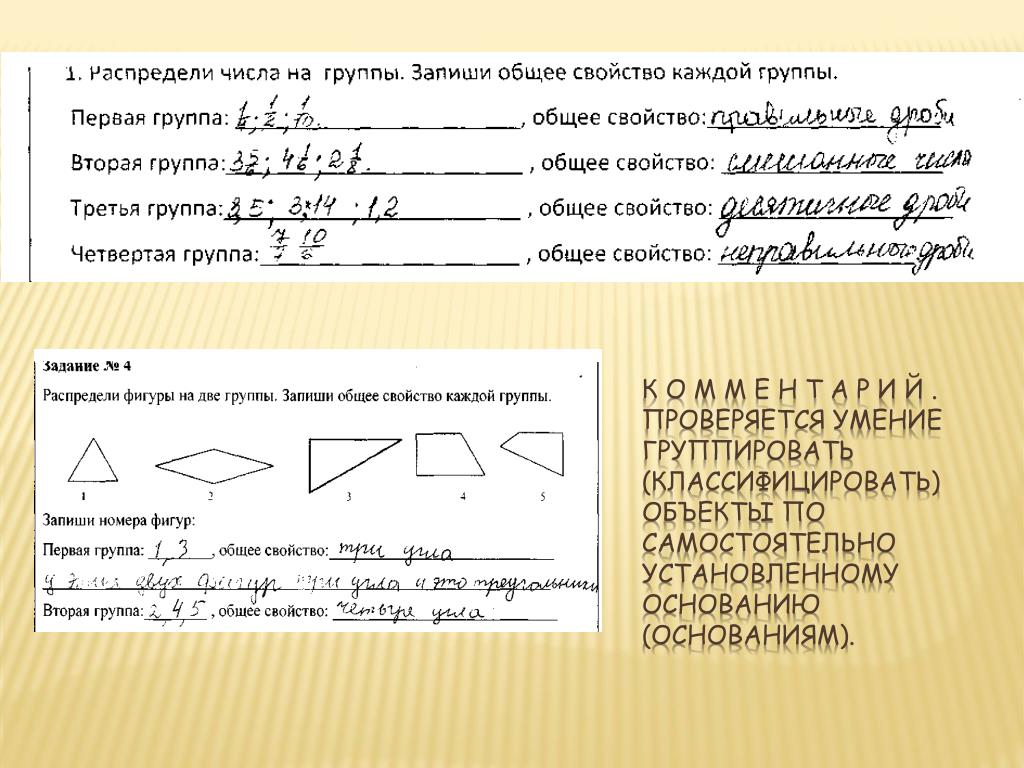 1. Распредели числа на группы. Запиши общее свойство каждой группы.
Первая группа: 1/4; 1/2; 1/10. , общее свойство: правильные дроби
Вторая группа: 3 5/6; 4 1/6; 2 1/8. , общее свойство: смешанные числа
Третья группа: 3,5; 3,14 ; 1,2 , общее свойство: десятичные дроби
Четвертая группа: 7/7 10/6 , общее свойство: неправильные дроби
Задание № 4
Распредели фигуры на две группы. Запиши общее свойство каждой группы.
1 2 3 4 5
Запиши номера фигур:
Первая группа: 1, 3 , общее свойство: три угла
у этих двух фигур три угла и это треугольники
Вторая группа: 2, 4, 5 , общее свойство: четыре угла
КОММЕНТАРИЙ.
ПРОВЕРЯЕТСЯ УМЕНИЕ
ГРУППИРОВАТЬ
(КЛАССИФИЦИРОВАТЬ)
ОБЪЕКТЫ ПО
САМОСТОЯТЕЛЬНО
УСТАНОВЛЕННОМУ
ОСНОВАНИЮ
(ОСНОВАНИЯМ).